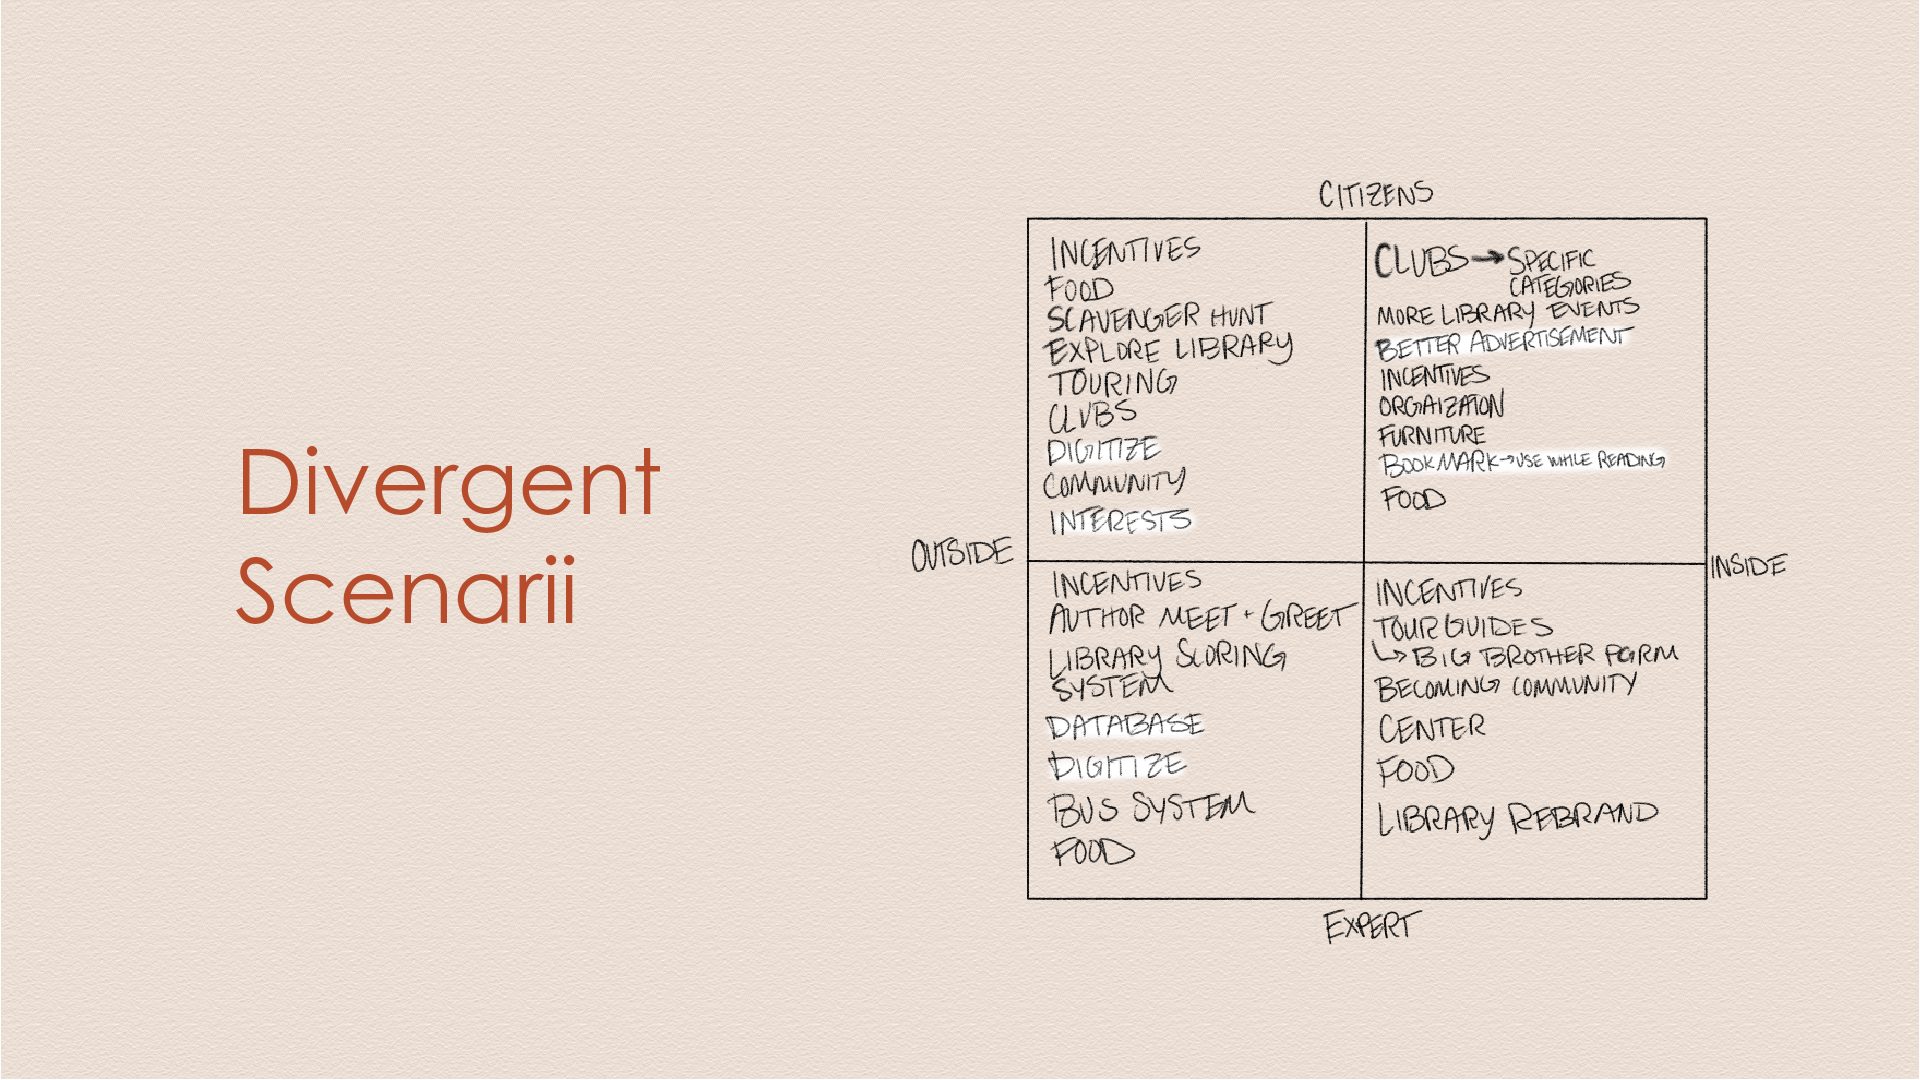 Divergent
Scenarii
CITIZENS
INCENTIVES
FOOD
SCAVENGER HUNT
EXPLORE LIBRARY
TOURING
CLUBS
DIGITIZE
COMMUNITY
INTERESTS
CLUBS → SPECIFIC
CATEGORIES
MORE LIBRARY EVENTS
BETTER ADVERTISEMENT
INCENTIVES
ORGAIZATON
FURNITURE
BOOKMARK → USE WHILE READING
FOOD
OUTSIDE
INSIDE
INCENTIVES
AUTHOR MEET + GREET
LIBRARY SCORING
SYSTEM
DATABASE
DIGITIZE
BUS SYSTEM
FOOD
INCENTIVES
TOUR GUIDES
↳ BIG BROTHER FORM
BECOMING COMMUNITY
CENTER
FOOD
LIBRARY REBRAND
EXPERT